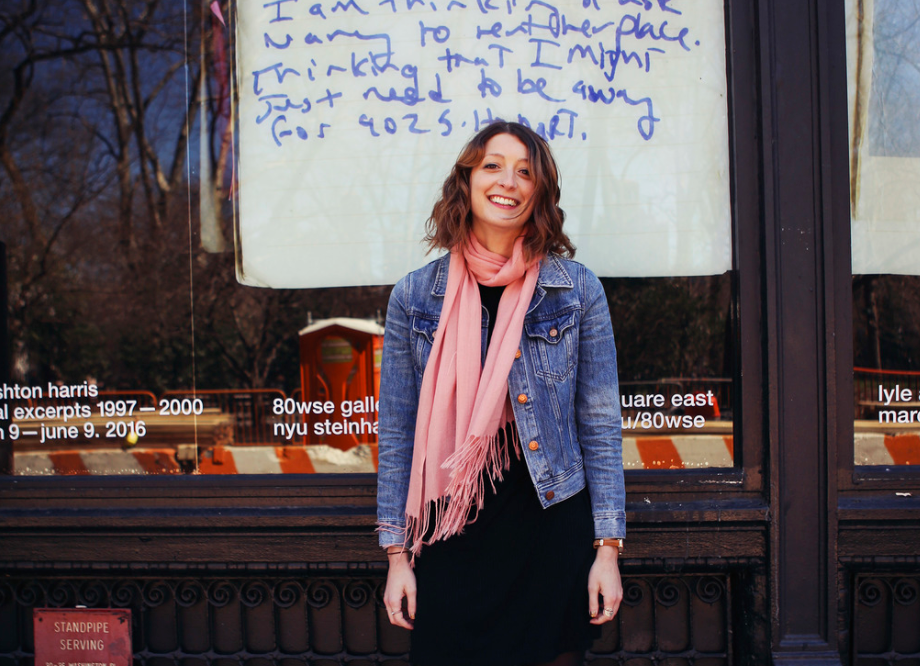 I am thinking
Nancy to rent other place.
Thinking that I might
just need to be away
for 9025.
shton harris
al excerpts 1997 – 2000
9 – june 9. 2016
80wse galle
nyu steinha
uare east
u/80wse
lyle
marc
STANDPIPE
SERVING